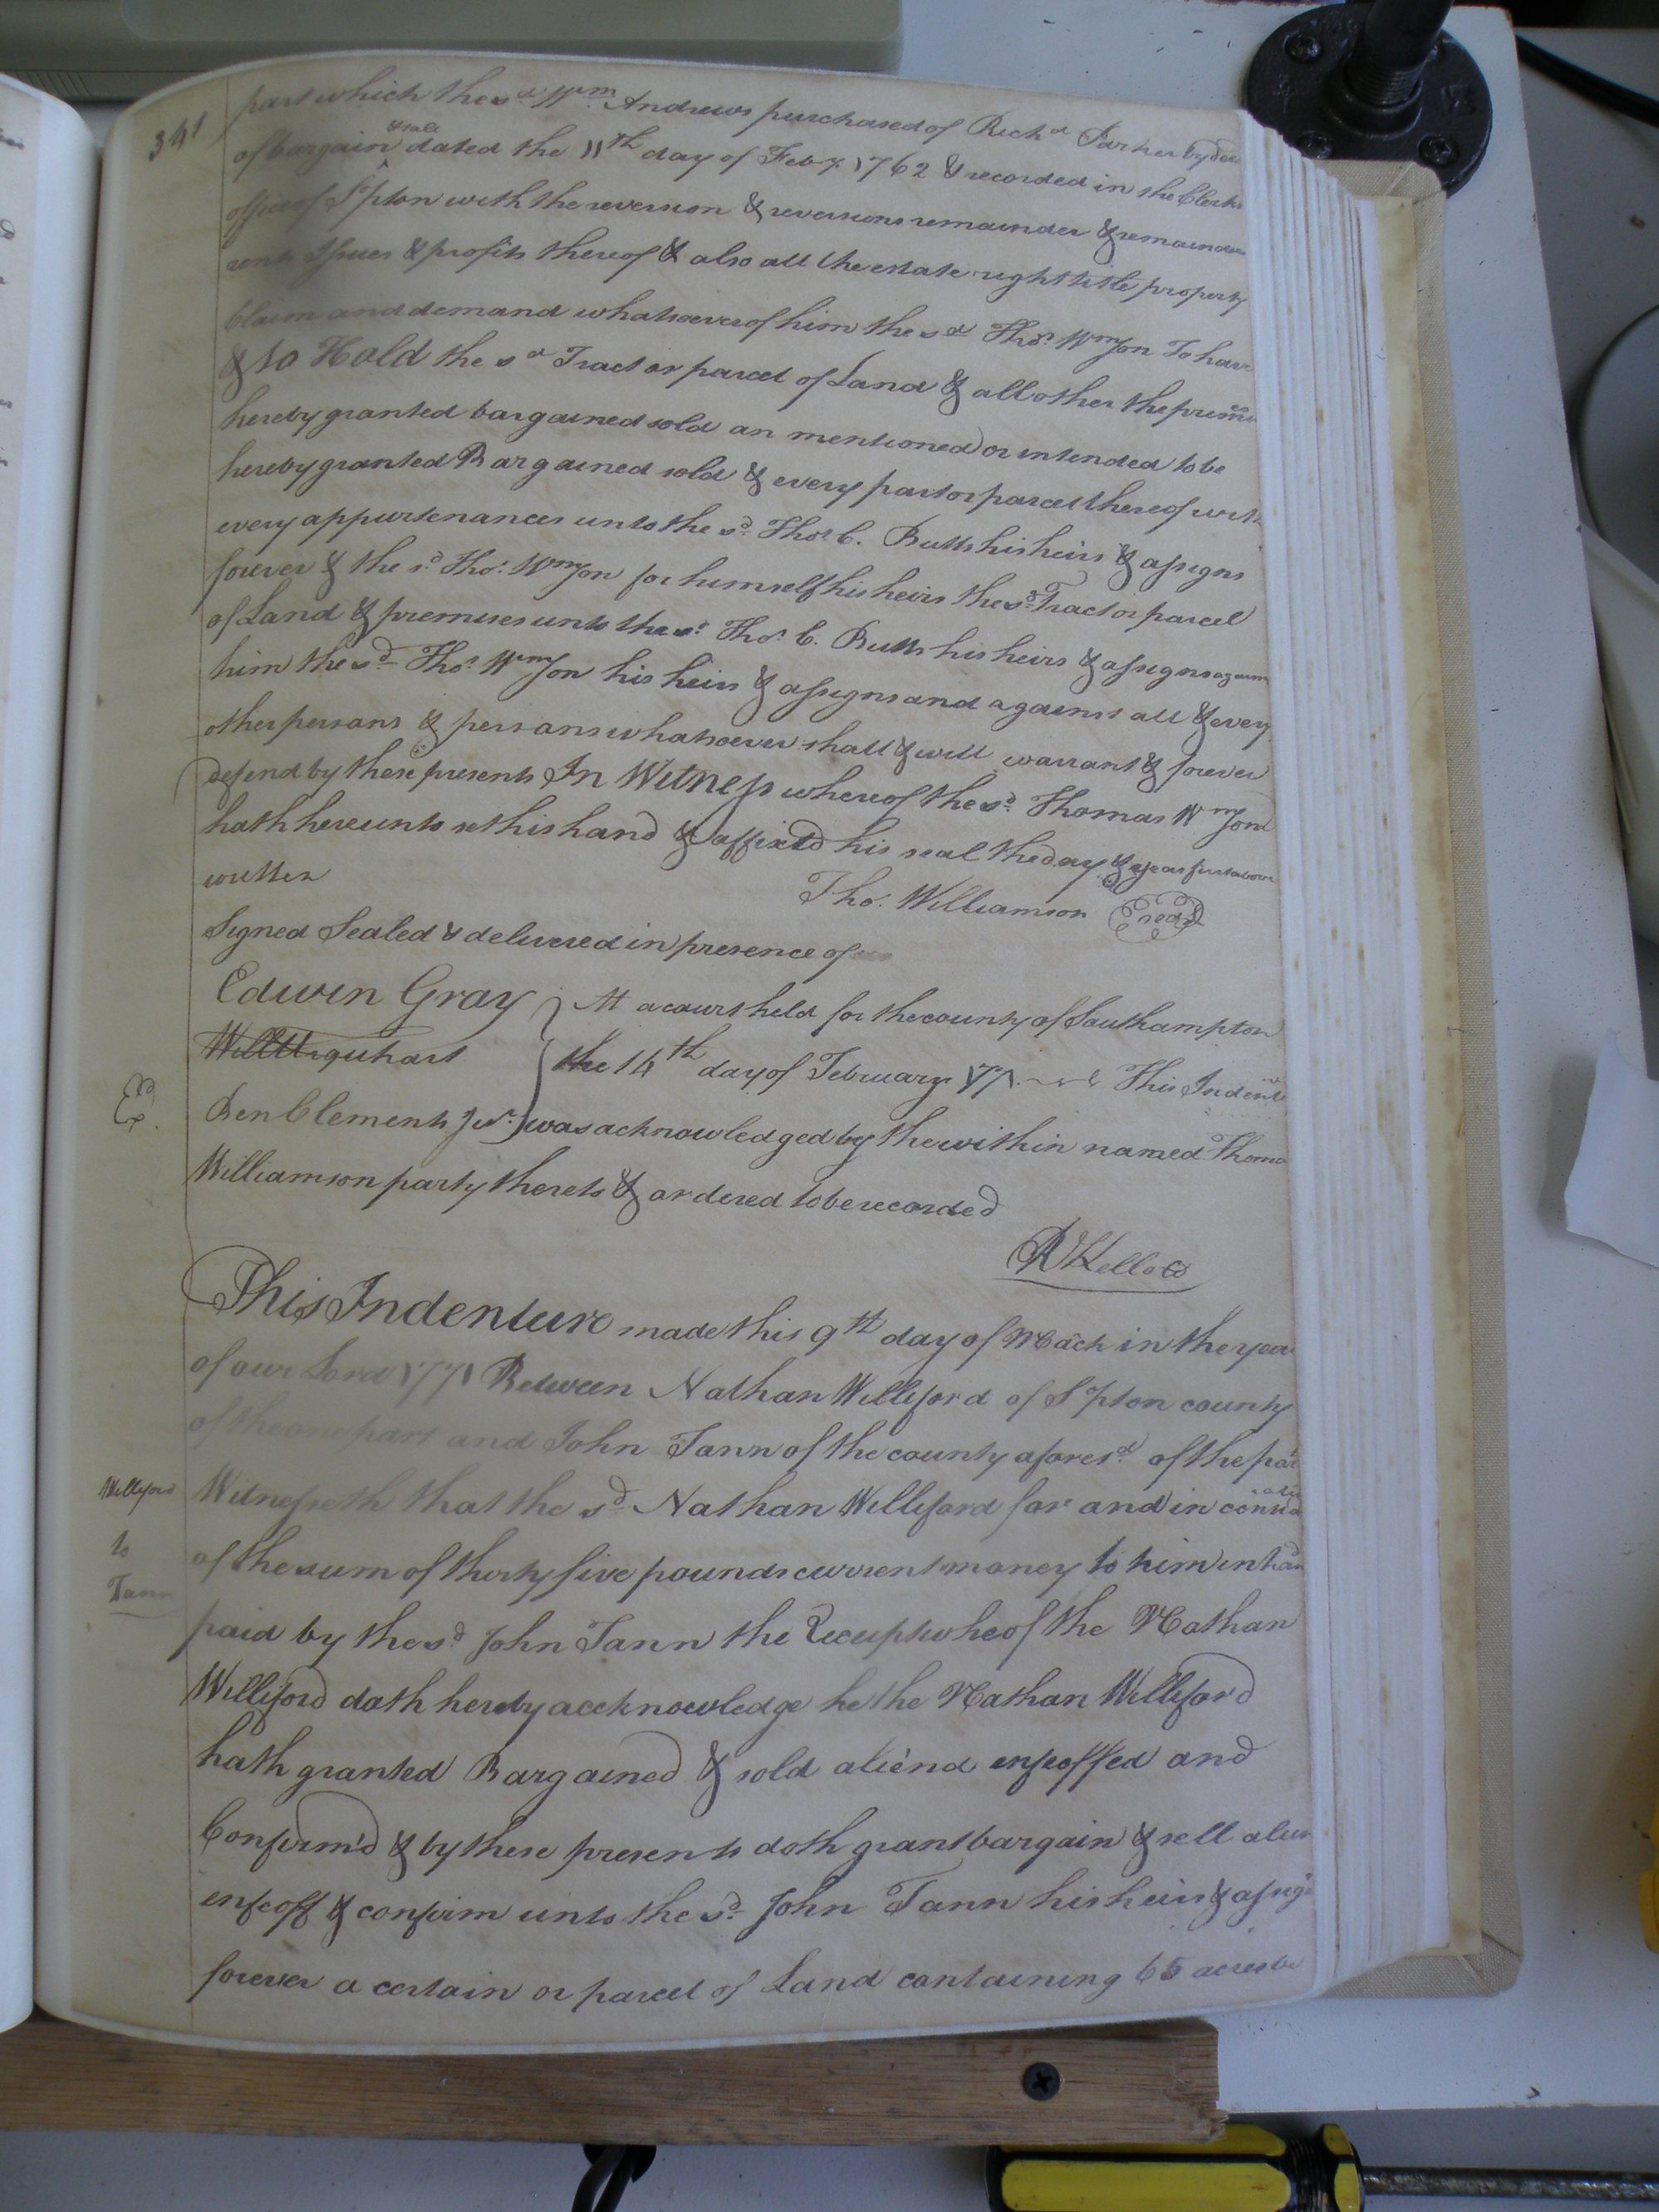 341
part which the sd Wm Andrews purchased of Richd Parker by dee
of bargain & sale dated the 11th day of Feby 1762 & recorded in the Clerks
office of S'pton with the reversion & reversions remainder & remainders
rents Issues & profits thereof & also all the estate right title property
Claim and demand whatsoever of him the sd Thos. Wmson To have
& to Hold the sd Tract or parcel of Land & all other the premes
hereby granted bargained sold an mentioned or intended to be
hereby granted Bargained sold & every part or parcel thereof with
every appurtenances unto the sd. Thos C. Butts his heirs & assigns
forever & the sd. Thos. Wmson for himself his heirs the sd. Tract or parcel
of Land & premises unto the sd. Thos. C. Butts his heirs & assigns again
him the sd Thos. Wmson his heirs & assigns and against all & every
other persons & persons whatsoever shall & will warrant & forever
defend by these presents In Witness whereof the sd. Thomas Wmson
hath hereunto set his hand & affixed his seal the day & year first above
written Tho. Williamson seal
Signed Sealed & delivered in presence of
Edwin Gray At a court held for the county of Southampton
Will Urquhart the 14th day of February 177 This Indent
Exd. Ben Clements Jur. was acknowledged by the within named Thoma
Williamson party thereto & ordered to be recorded
R Kello CC
This Indenture made this 9th day of Mach in the year
of our Lord 1771 Between Nathan Williford of S'pton county
of the one part and John Tann of the county aforesd. of the pat
Williford Witnesseth that the sd. Nathan Williford for and in consideratn
to of the sum of thirty five pounds current money to him in han
Tann paid by the sd. John Tann the Receipt wheof the Nathan
Williford doth hereby accknowledge he the Nathan Williford
hath granted Bargained & sold alie'nd enfeoffed and
Confirm'd & by these presents doth grant bargain & sell alien
enfeoff & confirm unto the sd. John Tann his heirs & assigs
forever a certain or parcel of Land containing 65 acres be